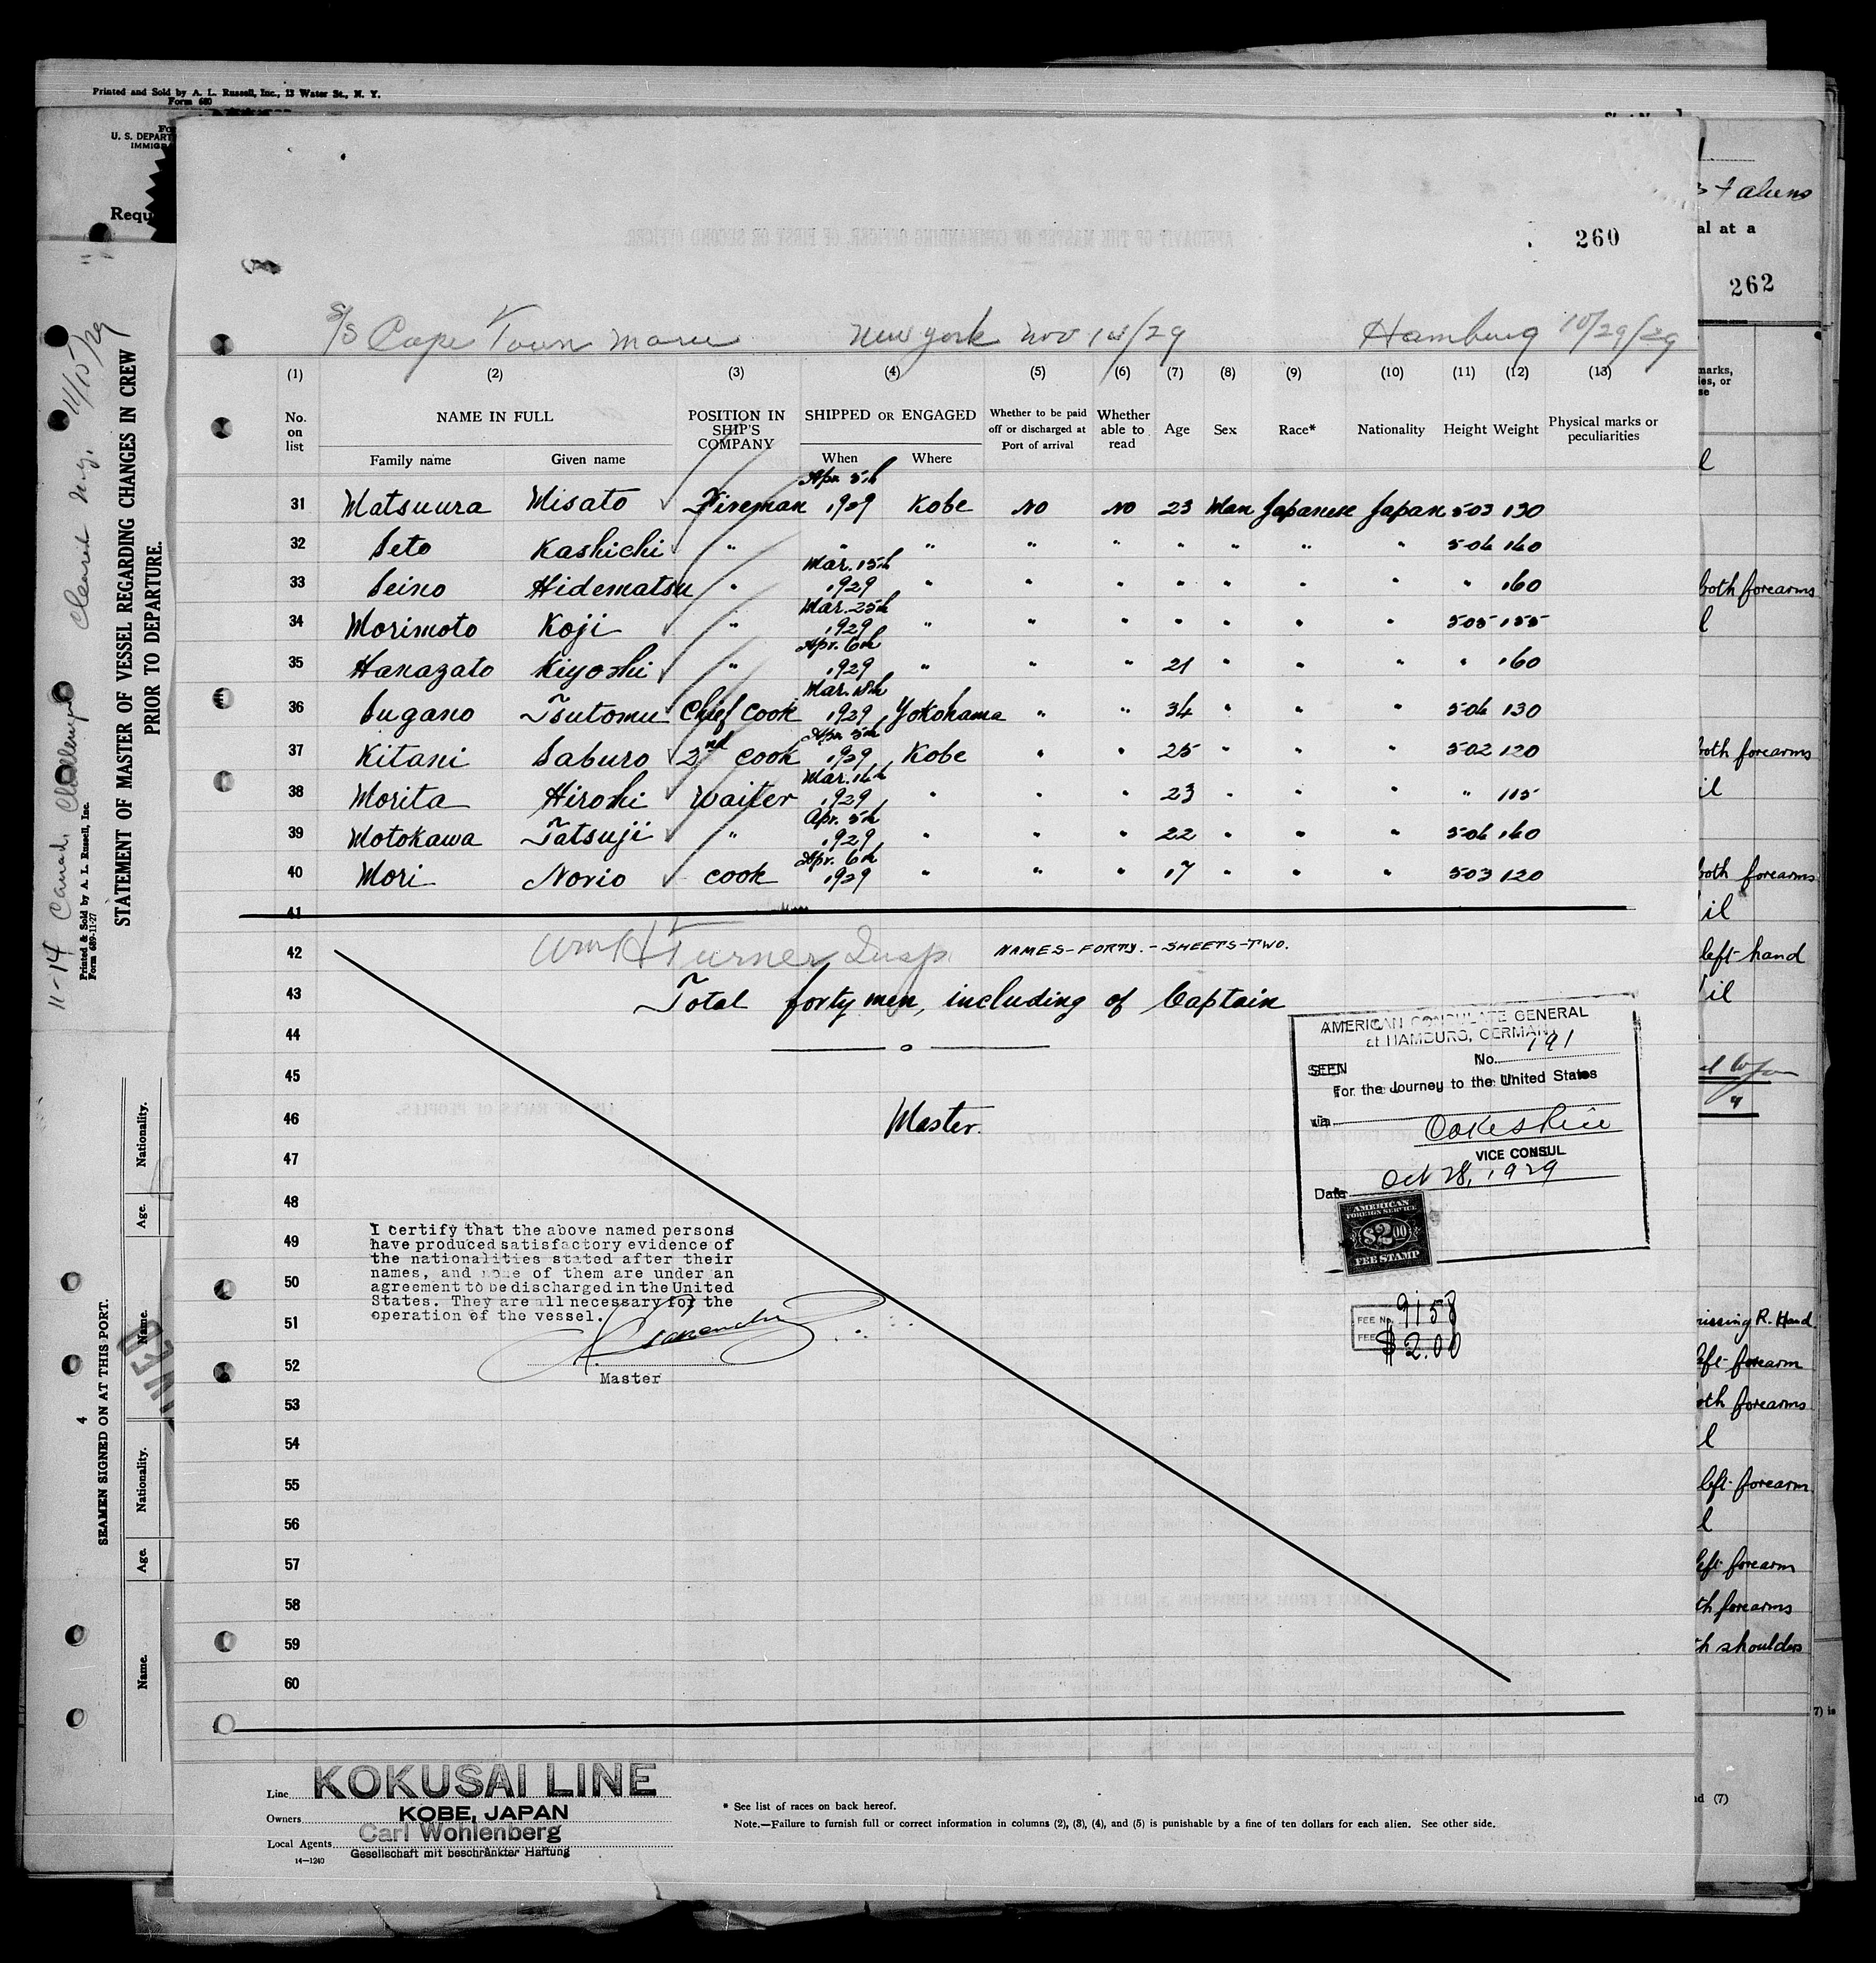 Printed and Sold by A. L. Russell, Inc., 13 Water St., N. Y.
Form 680
U. S. DEPART
IMMIG
Requ
& aliens
al at a
260
262
S/S Cape Town Maru New York Nov 14/29 Hamburg 10/29/29
(1) (2) (3) (4) (5) (6) (7) (8) (9) (10) (11) (12) (13)
No. on list NAME IN FULL POSITION IN SHIP'S COMPANY SHIPPED OR ENGAGED Whether to be paid off or discharged at Port of arrival Whether able to read Age Sex Race* Nationality Height Weight Physical marks or peculiarities
Family name Given name When Where
31 Matsuura Misato Fireman Apr. 5th 1929 Kobe No No 23 Man Japanese Japan 503 130
32 Seto Kashichi " " " " " " " " " 506 160
33 Seino Hidematsu " Mar. 15th 1929 " " " " " " " " 160
34 Morimoto Koji " Mar. 25th 1929 " " " " " " " 505 155
35 Hanazato Kiyoshi " Apr. 6th 1929 " " " 21 " " " " 160
36 Sugano Tsutomu Chief Cook Mar. 18th 1929 Yokohama " " 34 " " " 506 130
37 Kitani Saburo 2nd Cook Apr. 5th 1929 Kobe " " 25 " " " 502 120
38 Morita Hiroshi Waiter Mar. 16th 1929 " " " 23 " " " " 115
39 Motokawa Tatsuji " Apr. 5th 1929 " " " 22 " " " 506 160
40 Mori Norio Cook Apr. 6th 1929 " " " 17 " " " 503 120
41
42 Wm H Turner Insp. NAMES-FORTY.-SHEETS-TWO.
43 Total forty men, including of Captain
44
45
46 Master.
47
48
49
50
51
52
53
54
55
56
57
58
59
60
AMERICAN CONSULATE GENERAL
at HAMBURG, GERMANY
SEEN No. 191
For the Journey to the United States
via
VICE CONSUL
Date Oct 28, 1929
AMERICAN
FOREIGN SERVICE
$2.00
FEE STAMP
FEE No. 9158
FEE $2.00
I certify that the above named persons
have produced satisfactory evidence of
the nationalities stated after their
names, and none of them are under an
agreement to be discharged in the United
States. They are all necessary for the
operation of the vessel.
Master
Line KOKUSAI LINE
Owners KOBE, JAPAN
Local Agents Carl Wohlenberg
Gesellschaft mit beschränkter Haftung
14—1240
* See list of races on back hereof.
Note.—Failure to furnish full or correct information in columns (2), (3), (4), and (5) is punishable by a fine of ten dollars for each alien. See other side.
STATEMENT OF MASTER OF VESSEL REGARDING CHANGES IN CREW
PRIOR TO DEPARTURE.
Printed & Sold by A. L. Russell, Inc.
Form 689-11-27
11-14 Canad. Challenger Cleared N.Y. 11/15/29
SEAMEN SIGNED ON AT THIS PORT.
4
Name. Age. Nationality. Name. Age. Nationality.
both forearms
both forearms
il
both forearms
il
left hand
il
missing R. Hand
left forearm
both forearms
l
left forearm
l
left forearm
th forearms
th shoulders
7) is
nd (7)